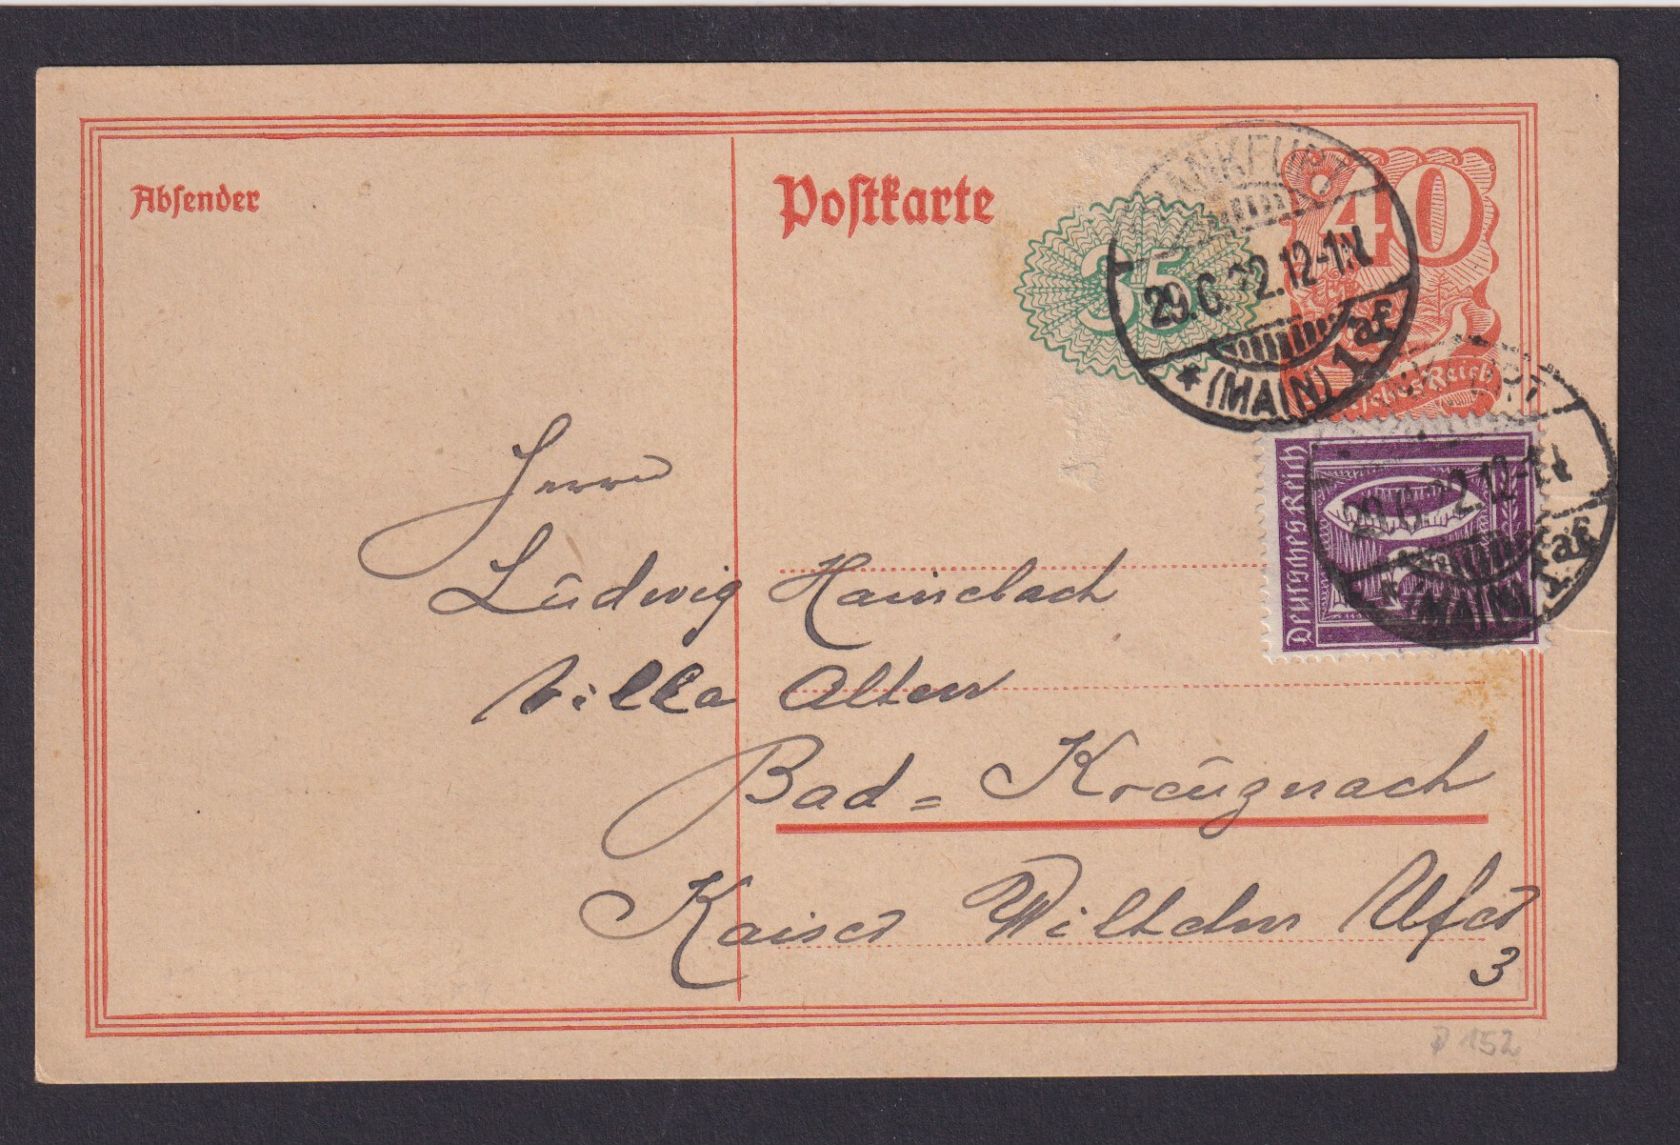 Absender
Postkarte
35
40
FRANKFURT
29.6.22.12-1N
* (MAIN) 1 af
Deutsches Reich
Deutsches Reich
29.6.22.12-1N
* (MAIN) 1 af
Herrn
Ludwig Hainebach
Villa Alten
Bad=Kreuznach
Kaiser Wilhelm Ufer
3
P 152